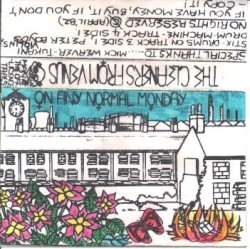 THE CLEANERS FROM VENUS
SPECIAL THANKS TO... MICK WEAVER-
STIX-DRUMS ON TRACK 3 SIDE 1. PETER
DRUM MACHINE-TRACK 4 SIDE 1
NO RIGHTS RESERVED (APRIL '82)
IF YOU HAVE MONEY, BUY IT. IF YOU DON'T
COPY IT!
ON ANY NORMAL MONDAY